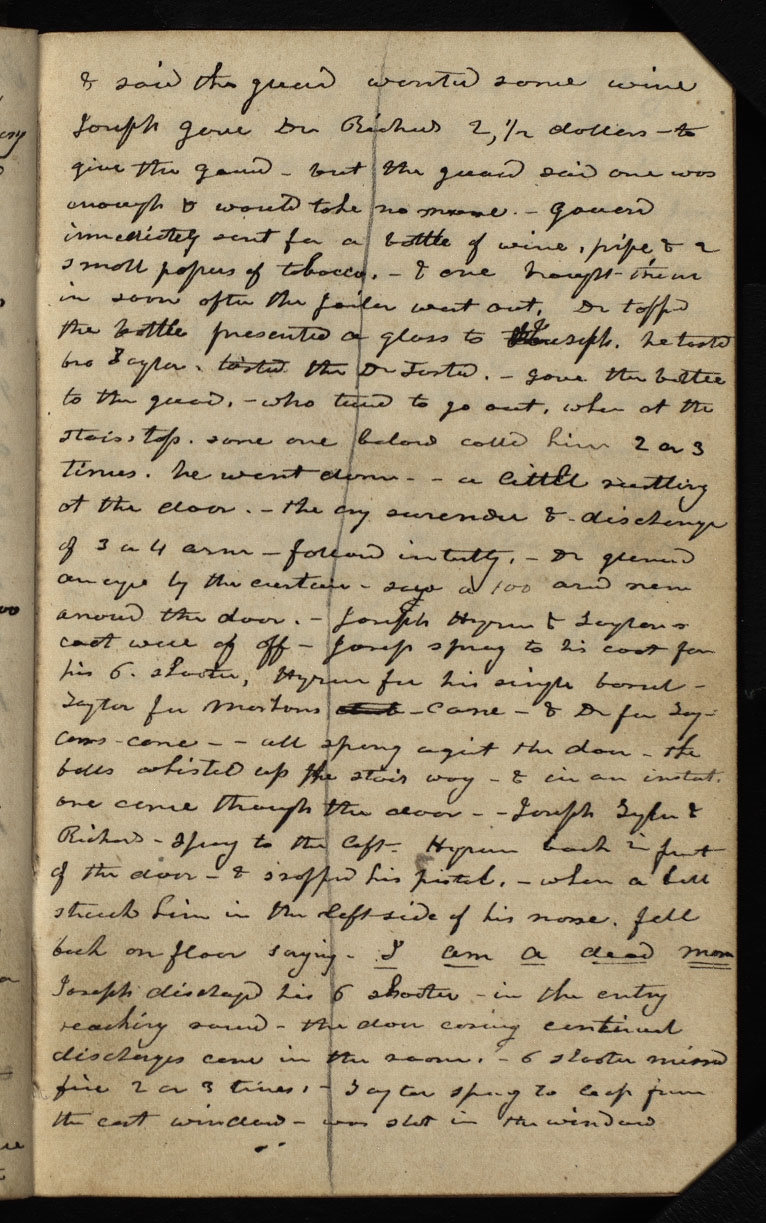 & said the guard wanted some wine
Joseph gave Dr Richards 2, 1/2 dollars - to
give the guard - but the guard said one was
enough & would take no more. - guard
immediately sent for a bottle of wine, pipe & 2
small papers of tobacco. - & one brought them
in soon after the Jailer went out. Dr
the bottle presented a glass to Joseph. he tasted
bro Taylor. tasted the Dr Tasted. - gave the bottle
to the guard. - who turned to go out. when at the
stairs top. some one below called him 2 or 3
times. he went down - - a little rustling
at the door. - the cry surender & discharge
of 3 or 4 arms - followed instantly. - Dr glanced
an eye by the curtain - saw a 100 armed men
around the door. - Joseph Hyrum & Taylors
coat were off - Joseph sprang to his coat for
his 6. shooter, Hyrum for his single barrel -
Taylor for Markhams club - cane - & Dr for Tay-
lors - cane - - all sprang against the door - the
balls whistled up the stair way - & in an instant.
one came through the door - - Joseph Taylor &
Richards - sprang to the left - Hyrum back in front
of the door - & snapped his pistol. - when a ball
struck him in the left side of his nose. fell
back on floor saying - I am a dead man
Joseph discharged his 6 shooter - in the entry
reaching round - the door casing continual
discharges came in the room. - 6 shooter missed
fire 2 or 3 times. - Taylor sprang to leap from
the east window - was shot in the window